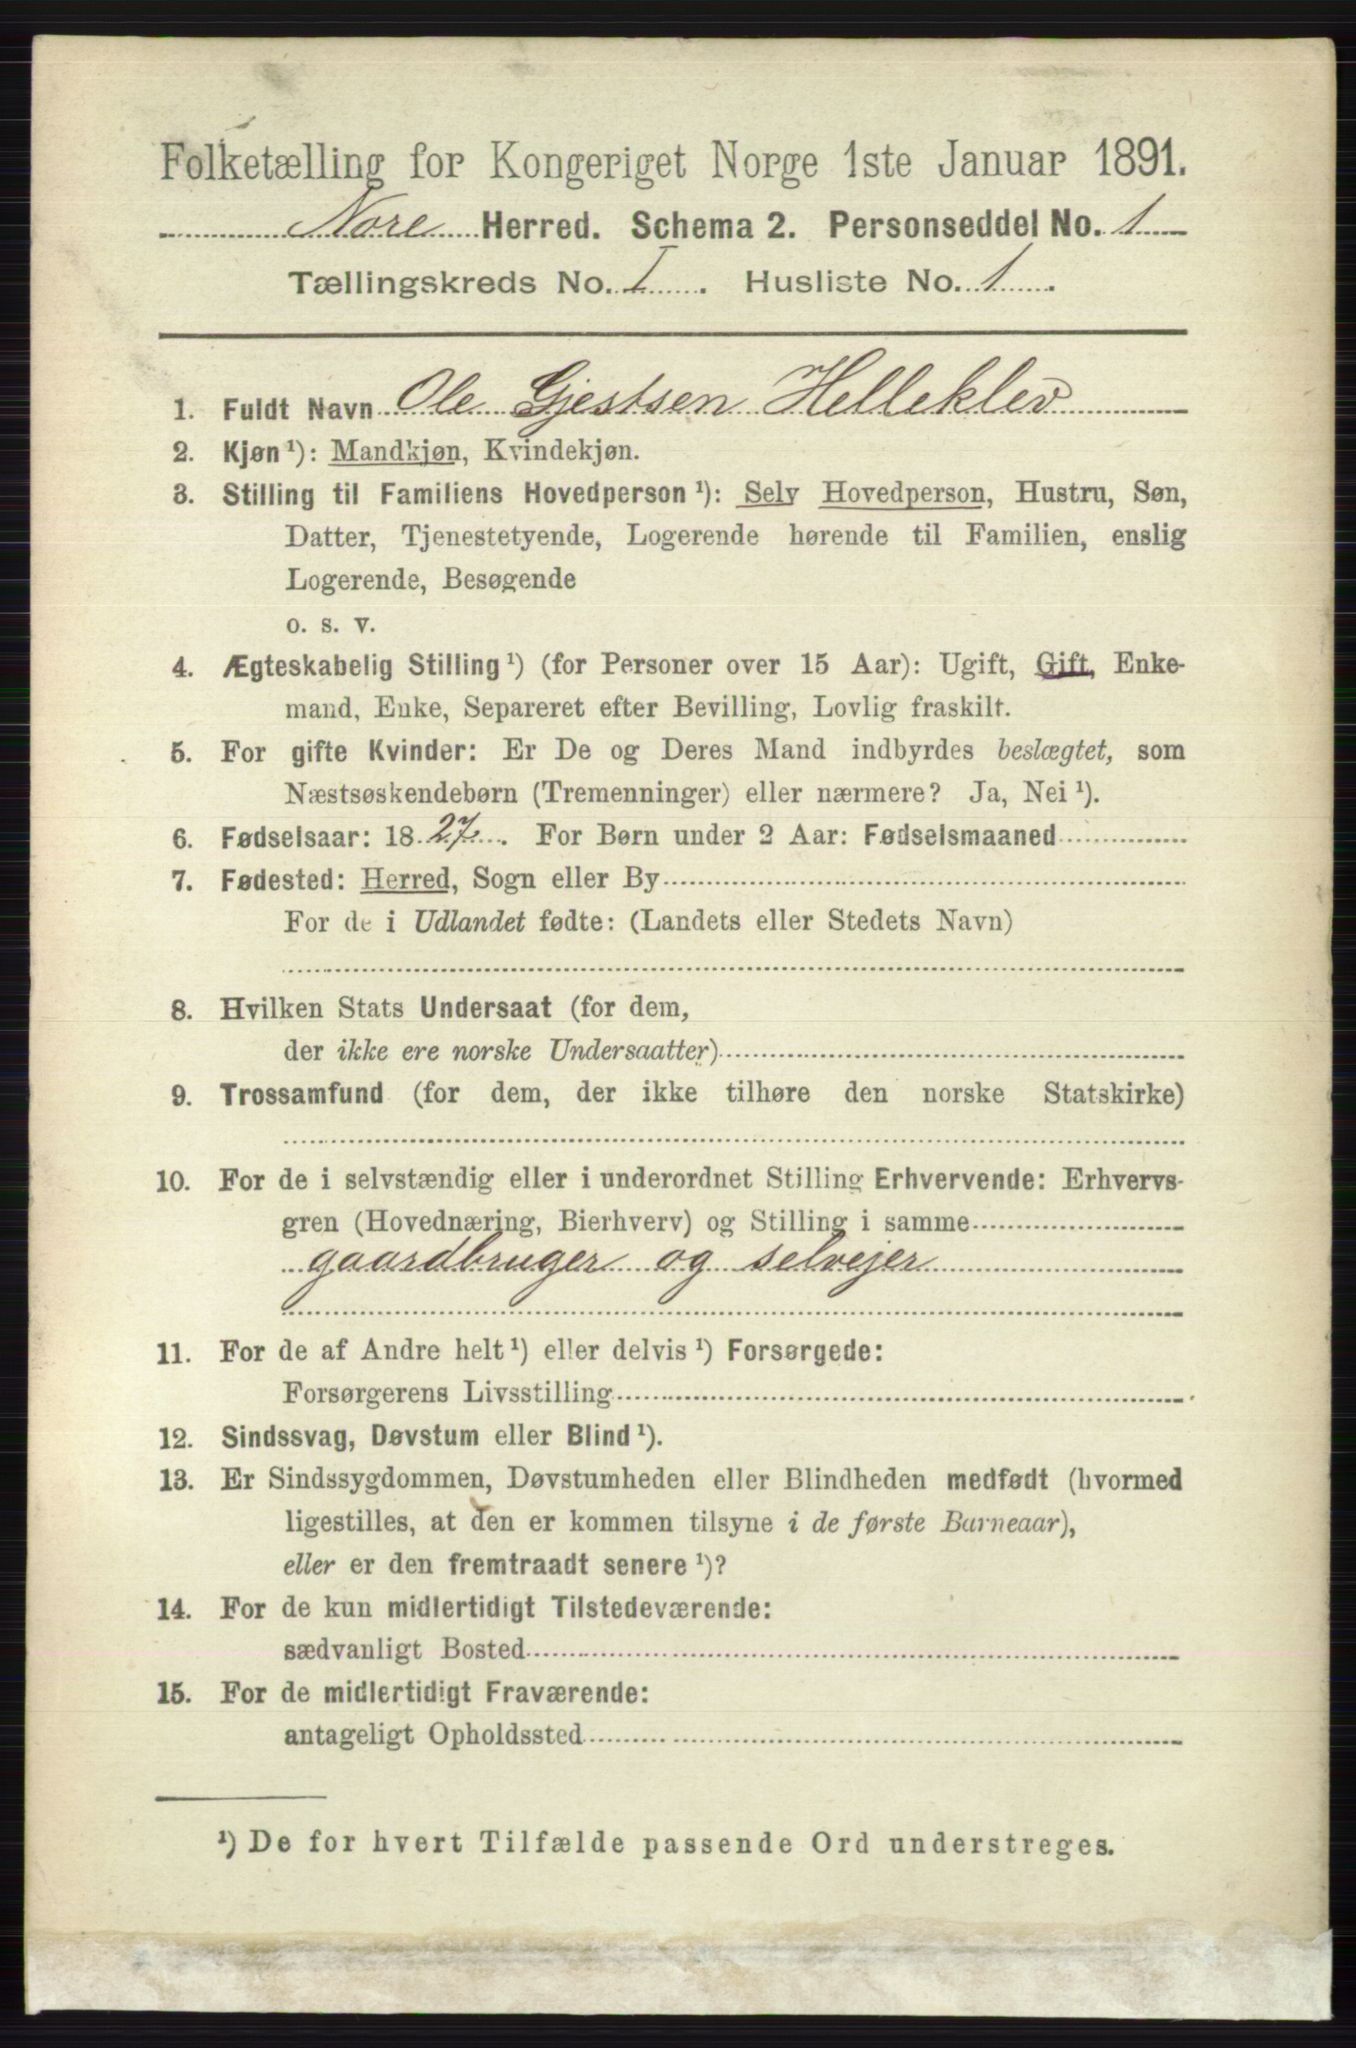 Folketælling for Kongeriget Norge 1ste Januar 1891.
Nore Herred. Schema 2. Personseddel No. 1
Tællingskreds No. I. Husliste No. 1.
1. Fuldt Navn Ole Gjestsen Helleklev
2. Kjøn ¹): Mandkjøn, Kvindekjøn.
3. Stilling til Familiens Hovedperson ¹): Selv Hovedperson, Hustru, Søn,
Datter, Tjenestetyende, Logerende hørende til Familien, enslig
Logerende, Besøgende
o. s. v.
4. Ægteskabelig Stilling ¹) (for Personer over 15 Aar): Ugift, Gift, Enke-
mand, Enke, Separeret efter Bevilling, Lovlig fraskilt.
5. For gifte Kvinder: Er De og Deres Mand indbyrdes beslægtet, som
Næstsøskendebørn (Tremenninger) eller nærmere? Ja, Nei ¹).
6. Fødselsaar: 1827. For Børn under 2 Aar: Fødselsmaaned
7. Fødested: Herred, Sogn eller By
For de i Udlandet fødte: (Landets eller Stedets Navn)
8. Hvilken Stats Undersaat (for dem,
der ikke ere norske Undersaatter)
9. Trossamfund (for dem, der ikke tilhøre den norske Statskirke)
10. For de i selvstændig eller i underordnet Stilling Erhvervende: Erhvervs-
gren (Hovednæring, Bierhverv) og Stilling i samme
gaardbruger og selvejer
11. For de af Andre helt ¹) eller delvis ¹) Forsørgede:
Forsørgerens Livsstilling
12. Sindssvag, Døvstum eller Blind ¹).
13. Er Sindssygdommen, Døvstumheden eller Blindheden medfødt (hvormed
ligestilles, at den er kommen tilsyne i de første Barneaar),
eller er den fremtraadt senere ¹)?
14. For de kun midlertidigt Tilstedeværende:
sædvanligt Bosted
15. For de midlertidigt Fraværende:
antageligt Opholdssted
¹) De for hvert Tilfælde passende Ord understreges.